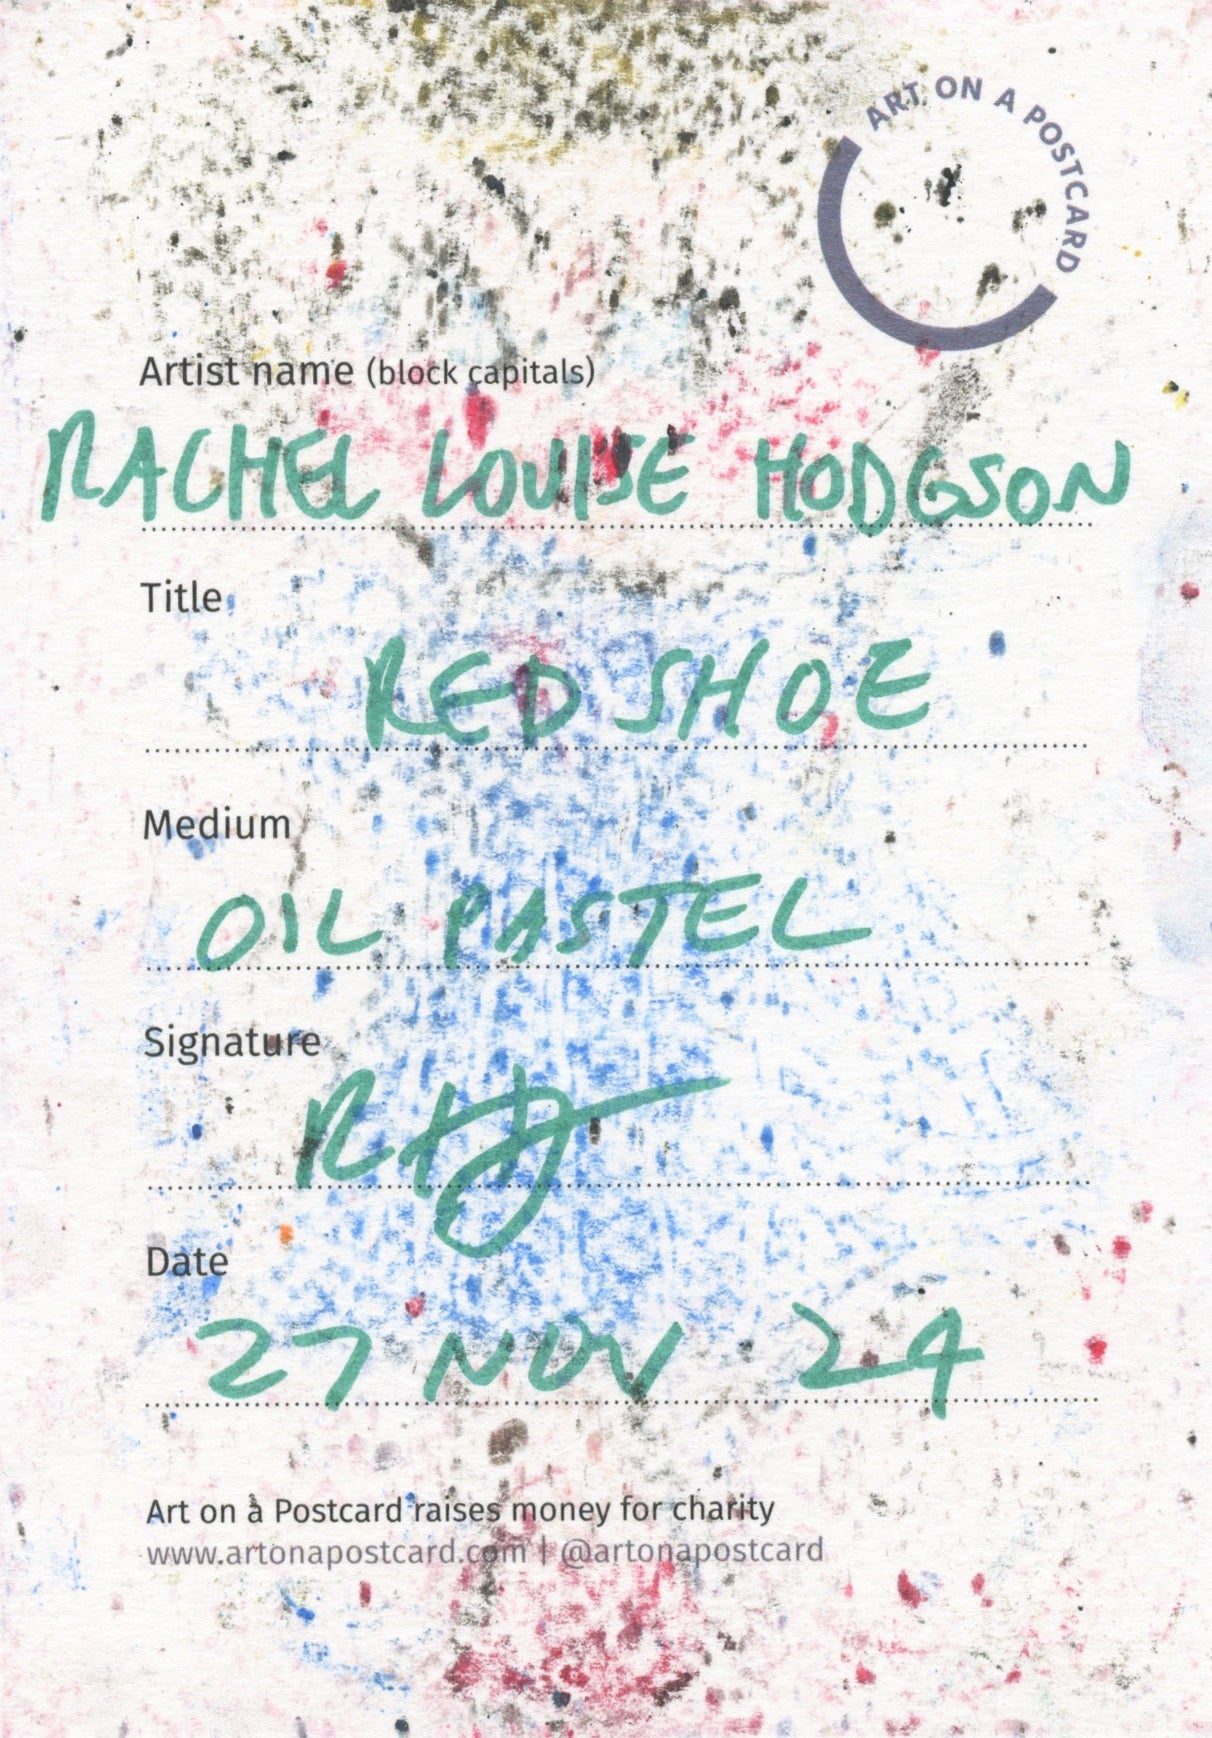 ART ON A POSTCARD
Artist name (block capitals)
RACHEL LOUISE HODGSON
Title
RED SHOE
Medium
OIL PASTEL
Signature
Date
27 NOV 24
Art on a Postcard raises money for charity
www.artonapostcard.com | @artonapostcard